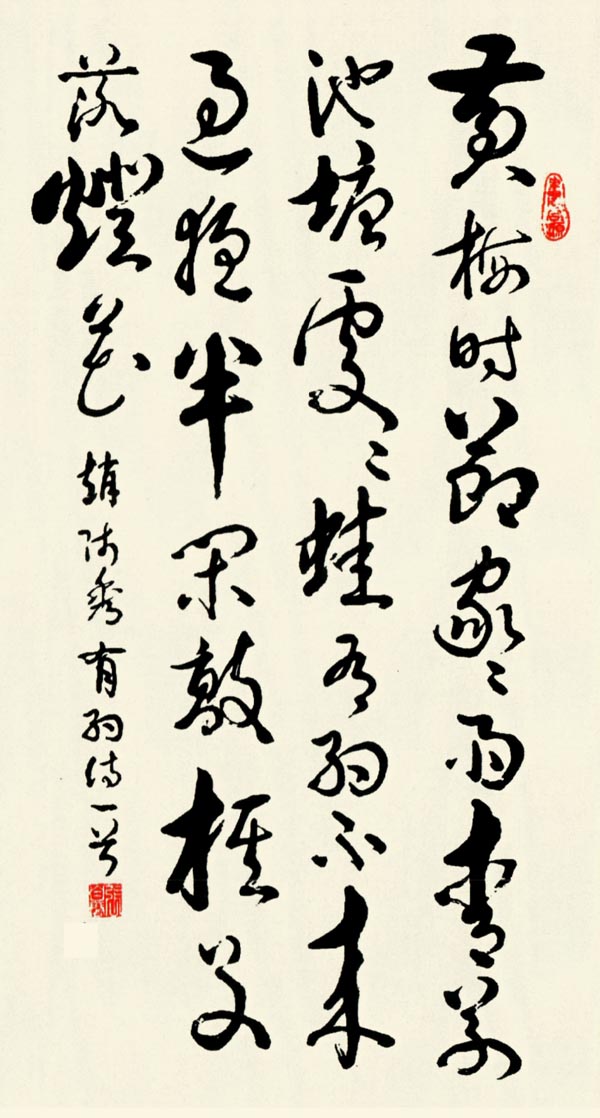 黄梅时節家々雨青草
池塘處々蛙有约不来
过夜半闲敲棋子
落燈花 趙师秀有约诗一首